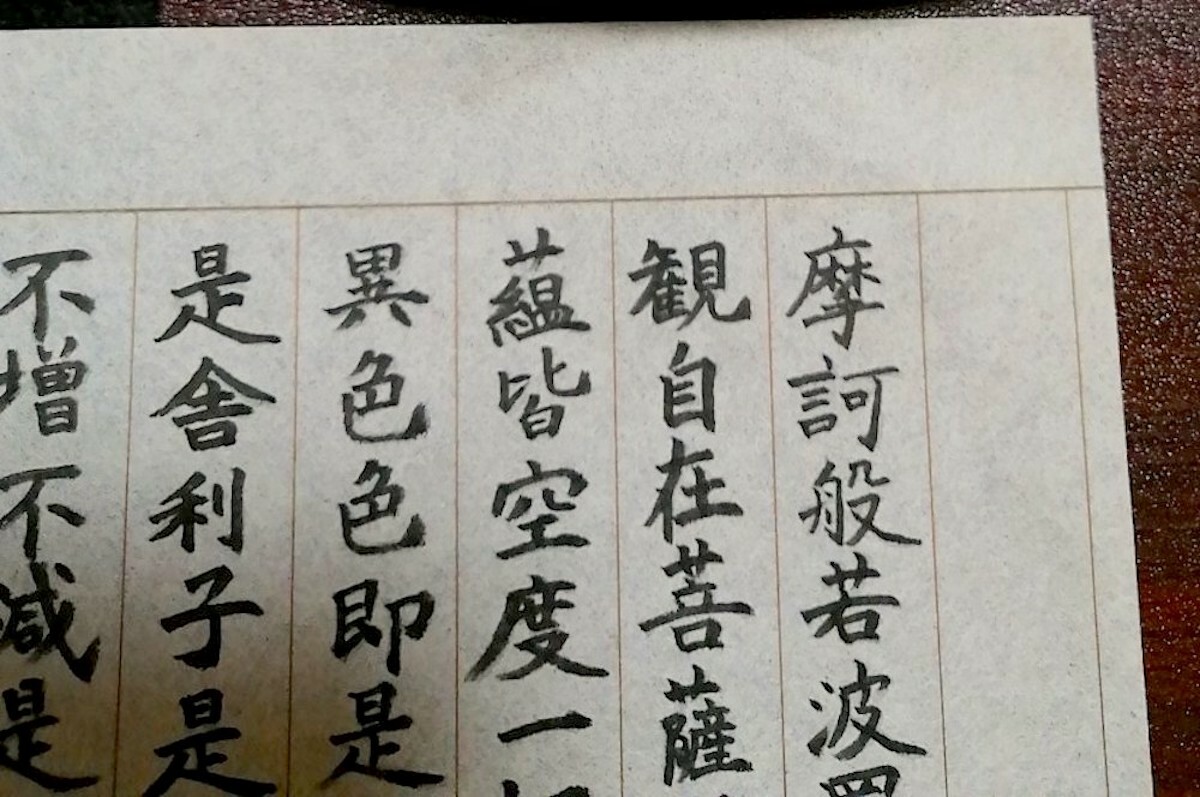 摩訶般若波
観自在菩薩
蘊皆空度一
異色色即是
是舎利子是
不増不減是